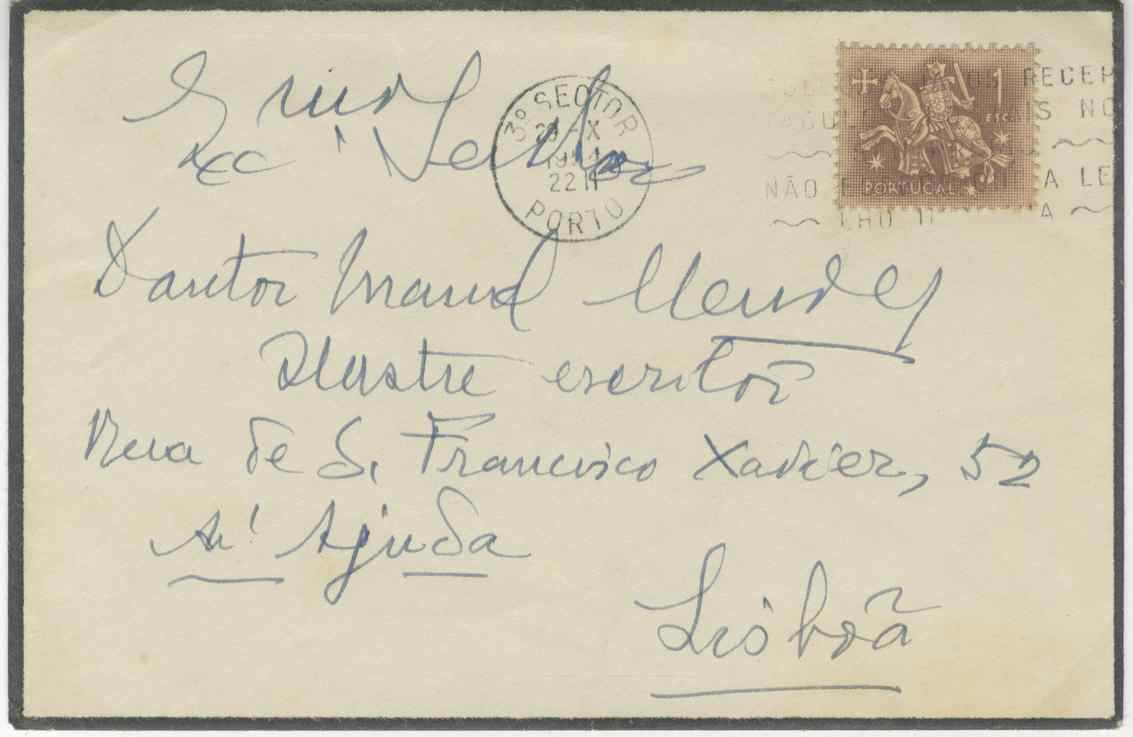 3º SECTOR
X
22 H
PORTO
RECEP
S NO
NÃO E A LE
LHO D A
1
ESC.
PORTUGAL
Senhor
Doutor Manuel Mendes
Ilustre escritor
Rua de S. Francisco Xavier, 52
Ajuda
Lisboa